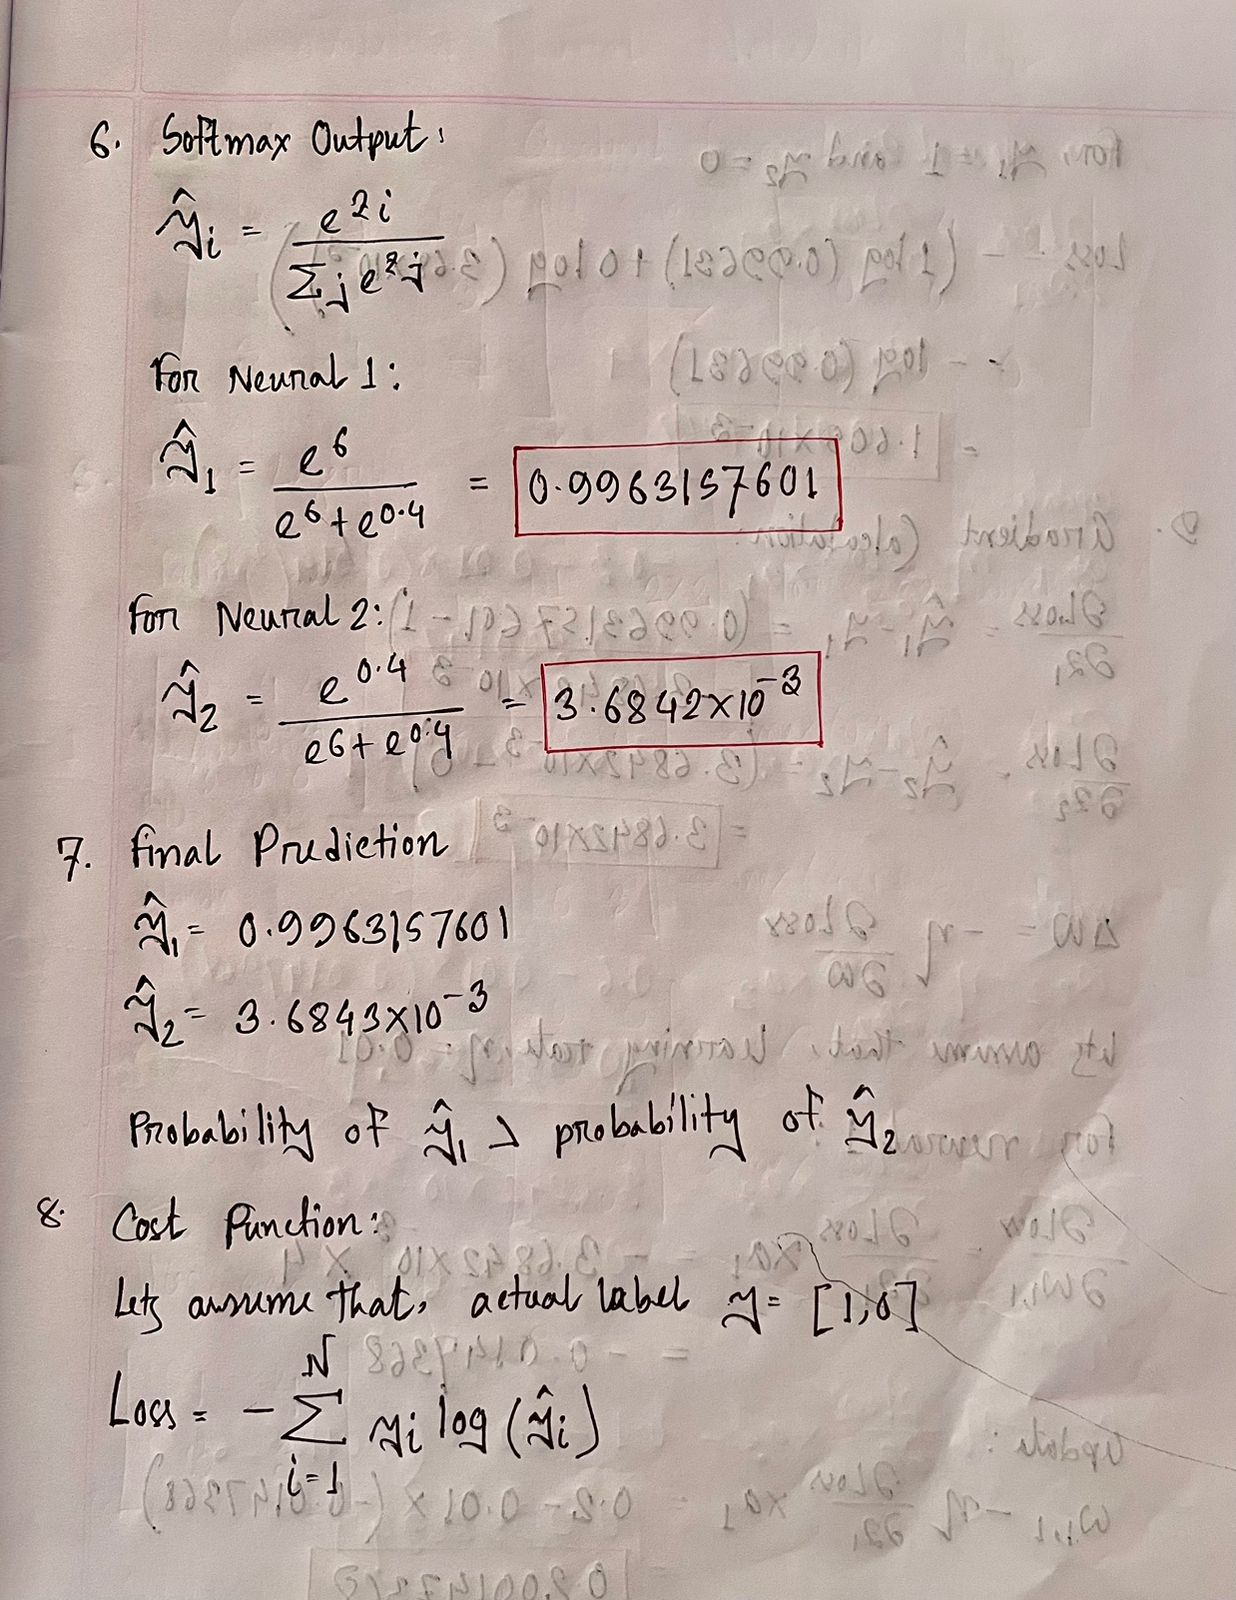 6. Softmax Output:
ŷi = e^zi / Σj e^zj
For Neural 1:
ŷ1 = e^6 / (e^6 + e^0.4) = 0.9963157601
For Neural 2:
ŷ2 = e^0.4 / (e^6 + e^0.4) = 3.6842×10^-3
7. Final Prediction
ŷ1 = 0.9963157601
ŷ2 = 3.6843×10^-3
Probability of ŷ1 > probability of ŷ2
8. Cost Function:
Lets assume that, actual label y = [1,0]
Loss = - Σ_{i=1}^{N} yi log (ŷi)